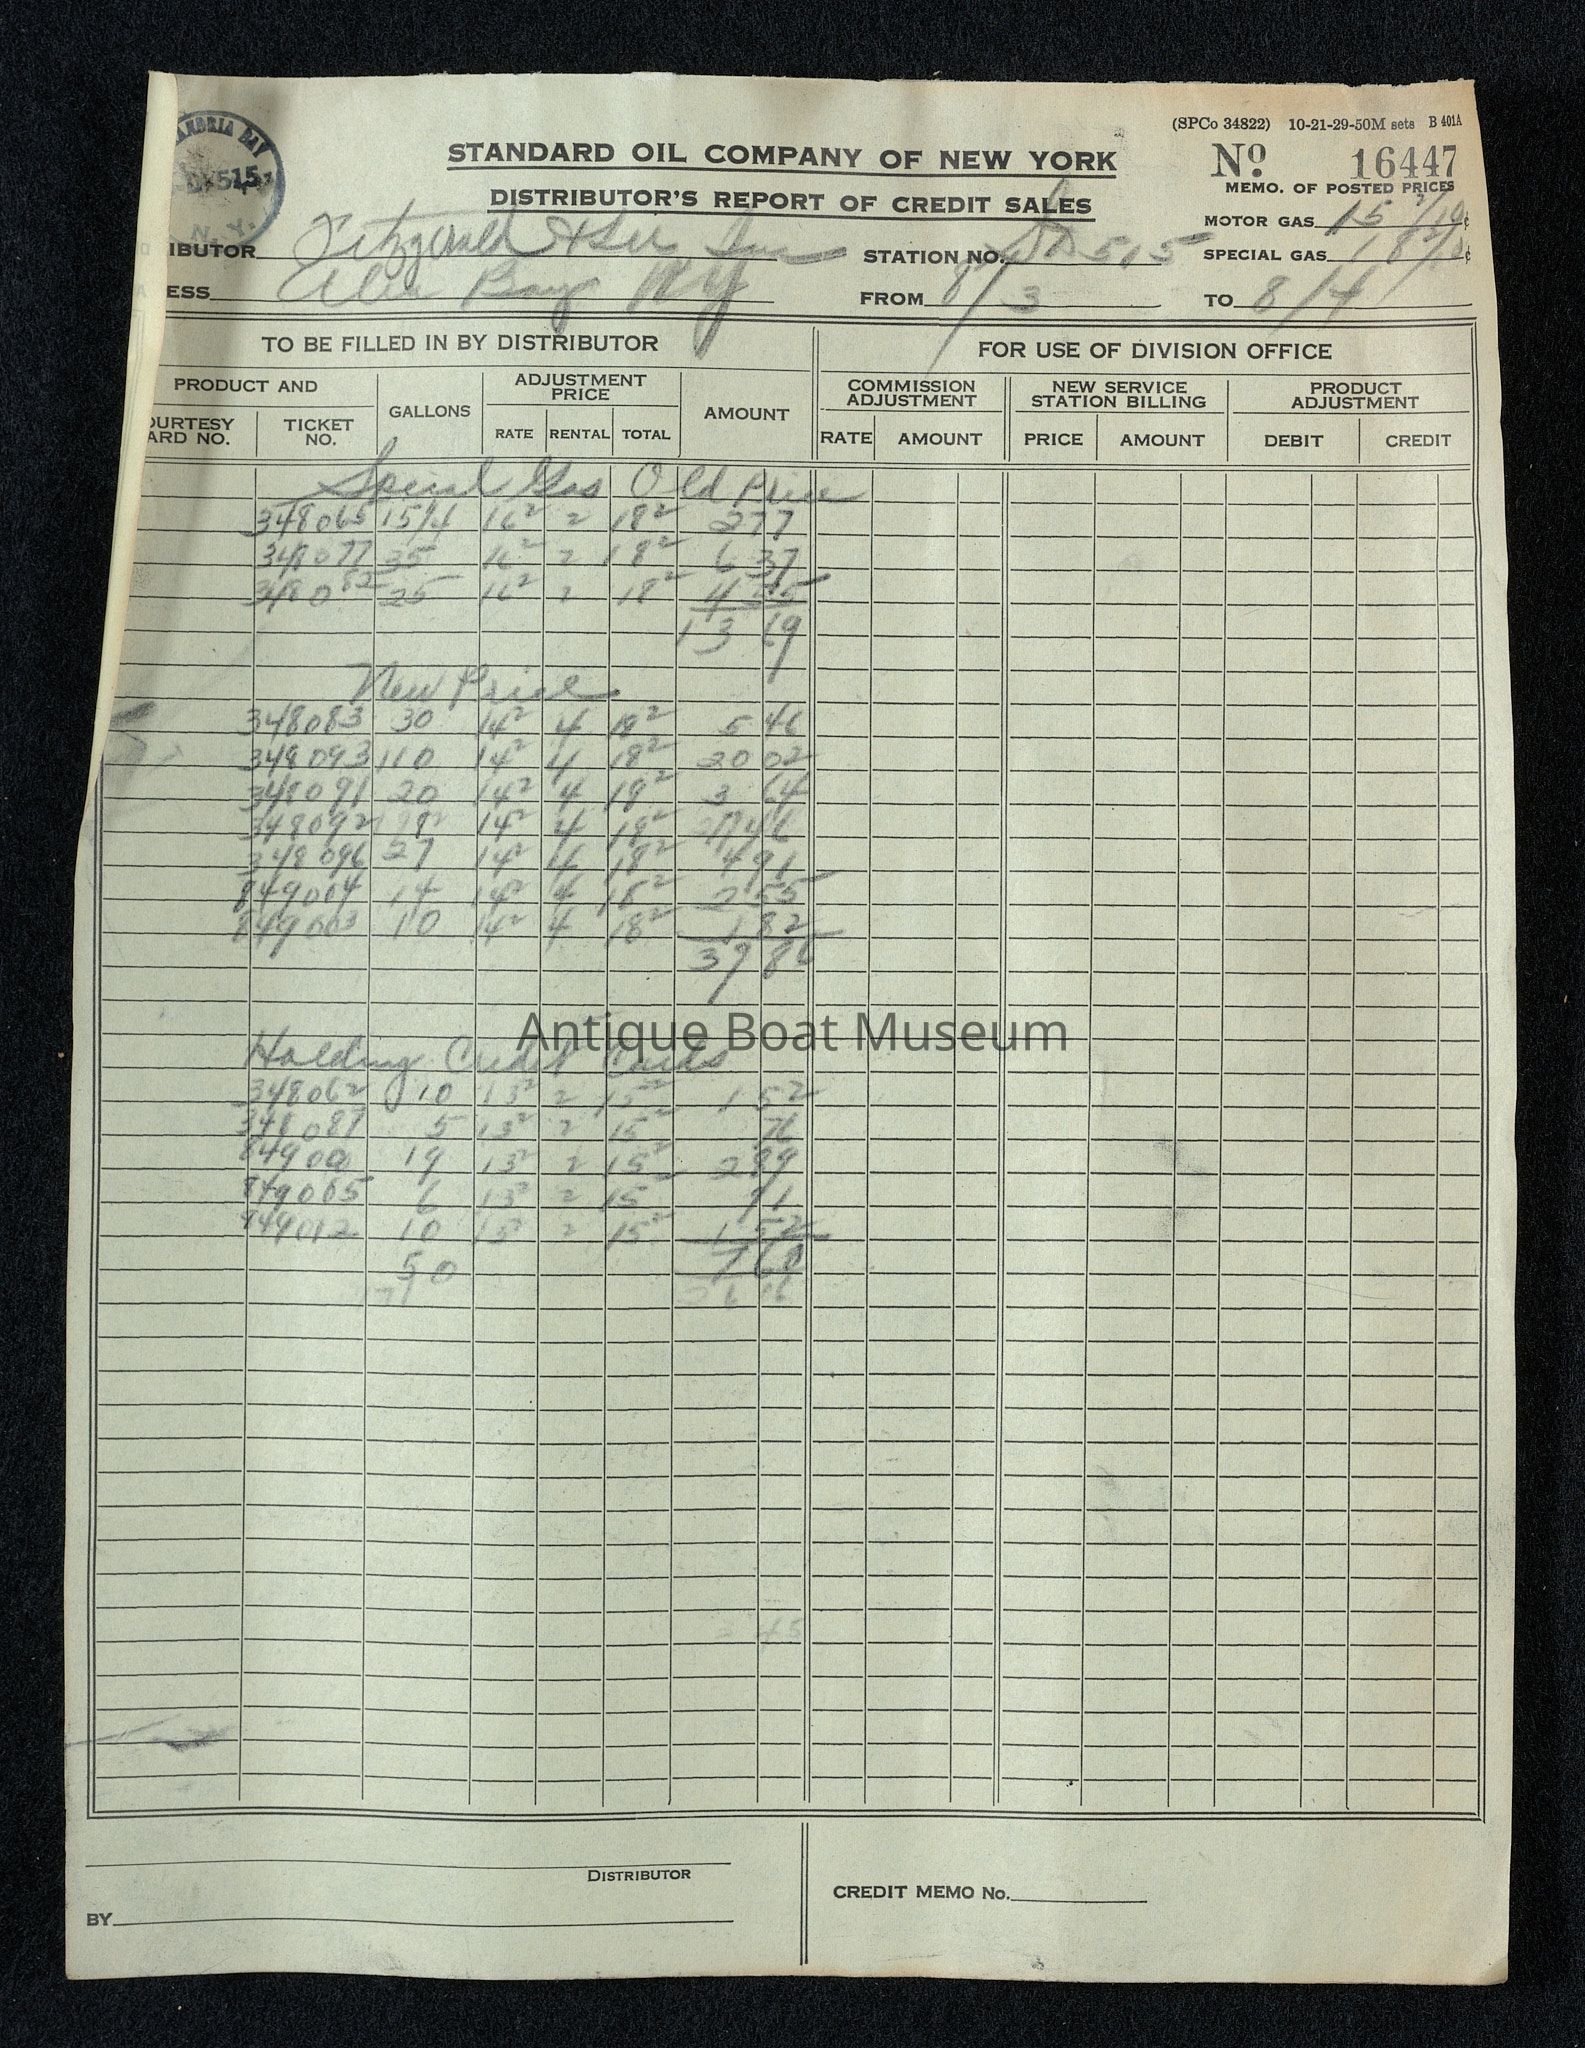 (SPCo 34822) 10-21-29-50M sets B 401A
STANDARD OIL COMPANY OF NEW YORK
No. 16447
DISTRIBUTOR'S REPORT OF CREDIT SALES
MEMO. OF POSTED PRICES
ANDRIA BAY
515
N. Y.
MOTOR GAS 15 2/10 ¢
IBUTOR Fitzgerald & Lee Inc
STATION NO. 515
SPECIAL GAS 18 2/10 ¢
ESS Alex Bay NY
FROM 8/3 TO 8/4
TO BE FILLED IN BY DISTRIBUTOR
FOR USE OF DIVISION OFFICE
PRODUCT AND
GALLONS
ADJUSTMENT PRICE
AMOUNT
COMMISSION ADJUSTMENT
NEW SERVICE STATION BILLING
PRODUCT ADJUSTMENT
OURTESY ARD NO. TICKET NO. RATE RENTAL TOTAL RATE AMOUNT PRICE AMOUNT DEBIT CREDIT
Special Gas Old Price
348065 15/4 16² 2 18² 2 77
348077 35 16² 2 18² 6 37
348082 25 16² 2 18² 4 55
13 69
New Price
348083 30 14² 4 18² 5 46
348093 110 14² 4 18² 20 02
348091 20 14² 4 18² 3 64
348092 14² 4 18² 1 46
348096 27 14² 4 18² 4 91
849004 14 14² 4 18² 2 55
849003 10 14² 4 18² 1 82
39 86
Antique Boat Museum
Holding Credit Cards
348062 10 13² 2 15² 1 52
348087 5 13² 2 15² 76
19 13² 2 15² 2 89
849005 6 13² 2 15² 91
849012 10 13² 2 15² 1 52
50 7 60
DISTRIBUTOR
CREDIT MEMO No.
BY